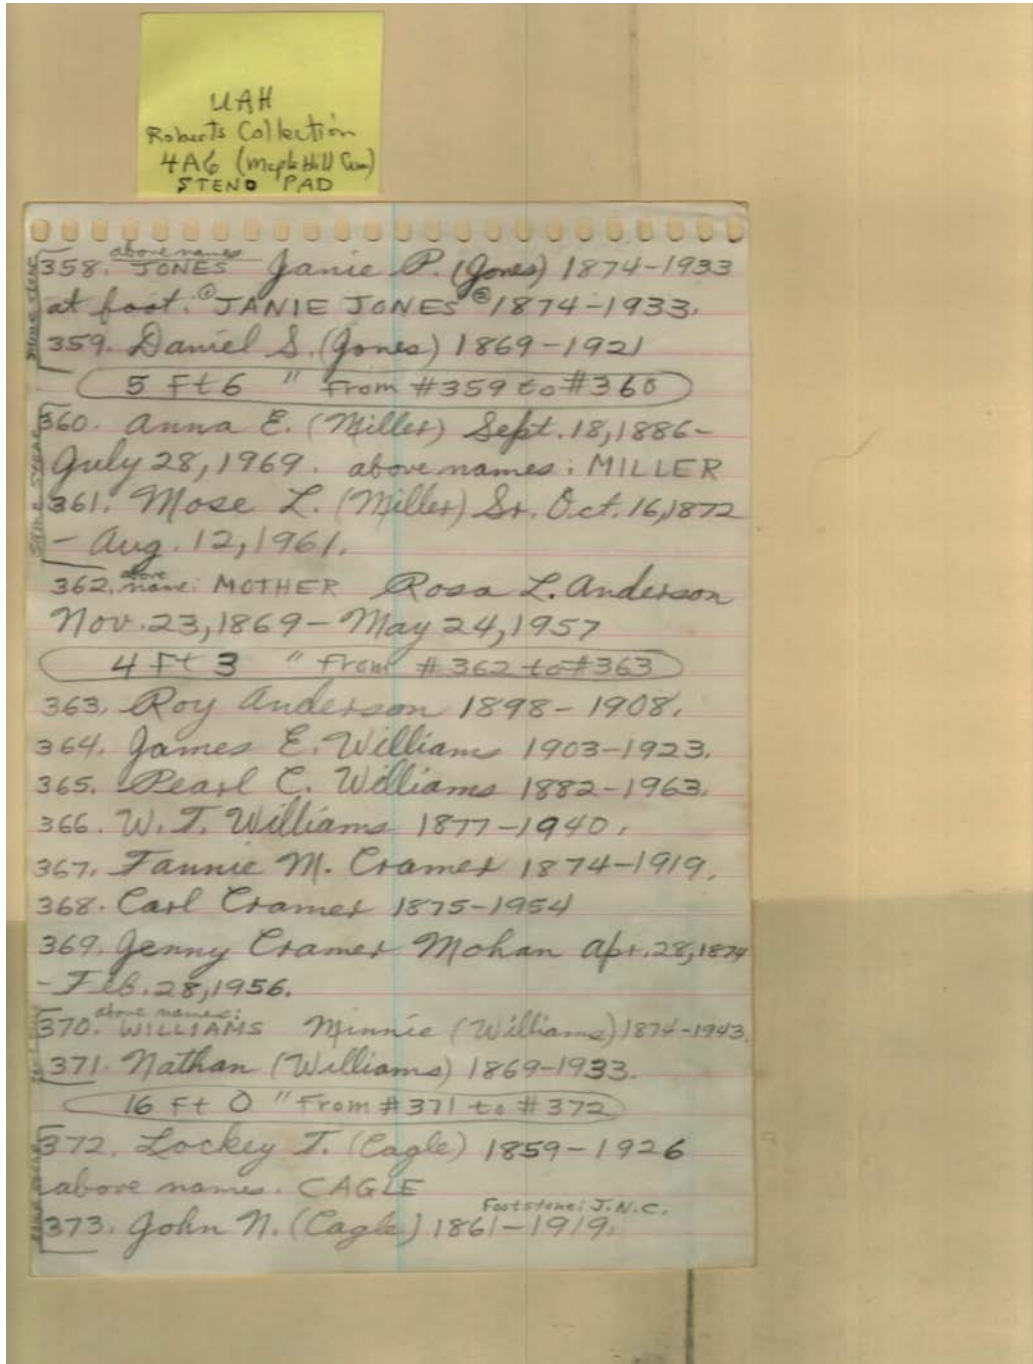 UAH
Roberts Collection
4A6 (Maple Hill Cem)
STENO PAD
above names
358. JONES Janie P. (Jones) 1874-1933
at foot: ① JANIE JONES ② 1874-1933.
359. Daniel S. (Jones) 1869-1921
same stone
5 Ft 6 " From #359 to #360
360. Anna E. (Miller) Sept. 18, 1886-
July 28, 1969. above names: MILLER
361. Mose L. (Miller) Sr. Oct. 16, 1872
- Aug. 12, 1961.
same stone
362. above name: MOTHER Rosa L. Anderson
Nov. 23, 1869 - May 24, 1957
4 Ft 3 " From #362 to #363
363. Roy Anderson 1898-1908.
364. James E. Williams 1903-1923.
365. Pearl C. Williams 1882-1963.
366. W. T. Williams 1877-1940.
367. Fannie M. Cramer 1874-1919.
368. Carl Cramer 1875-1954
369. Jenny Cramer Mohan Apr. 28, 1874
- Feb. 28, 1956.
above names:
370. WILLIAMS Minnie (Williams) 1874-1943.
371. Nathan (Williams) 1869-1933.
16 Ft 0 " From #371 to #372
372. Lockey T. (Cagle) 1859-1926
above names. CAGLE
Footstone: J.N.C.
373. John N. (Cagle) 1861-1919.